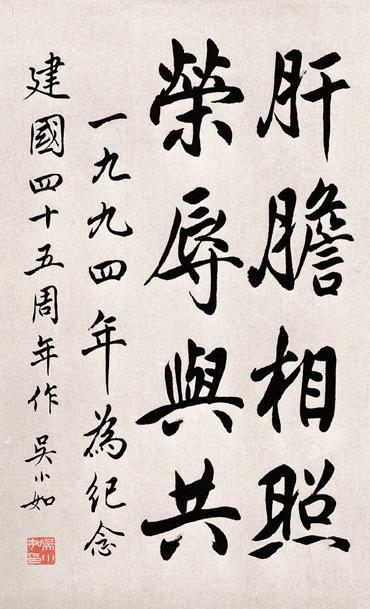 肝膽相照
榮辱與共
一九九四年為紀念
建國四十五周年作 吳小如